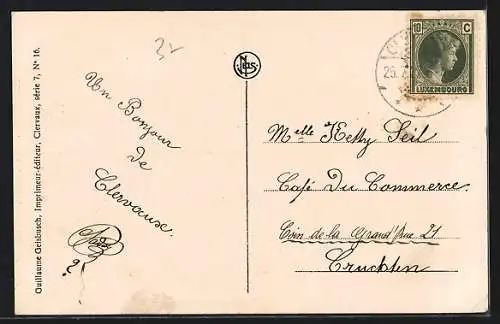 Guillaume Geisbusch, Imprimeur-éditeur, Clervaux, série 7, Nº 16.
Un Bonjour
de
Clervaux.
NELS
10 C
LUXEMBOURG
Melle Ketty Seil
Café Du Commerce
Coin de la Grand'Rue 21
Cruchten